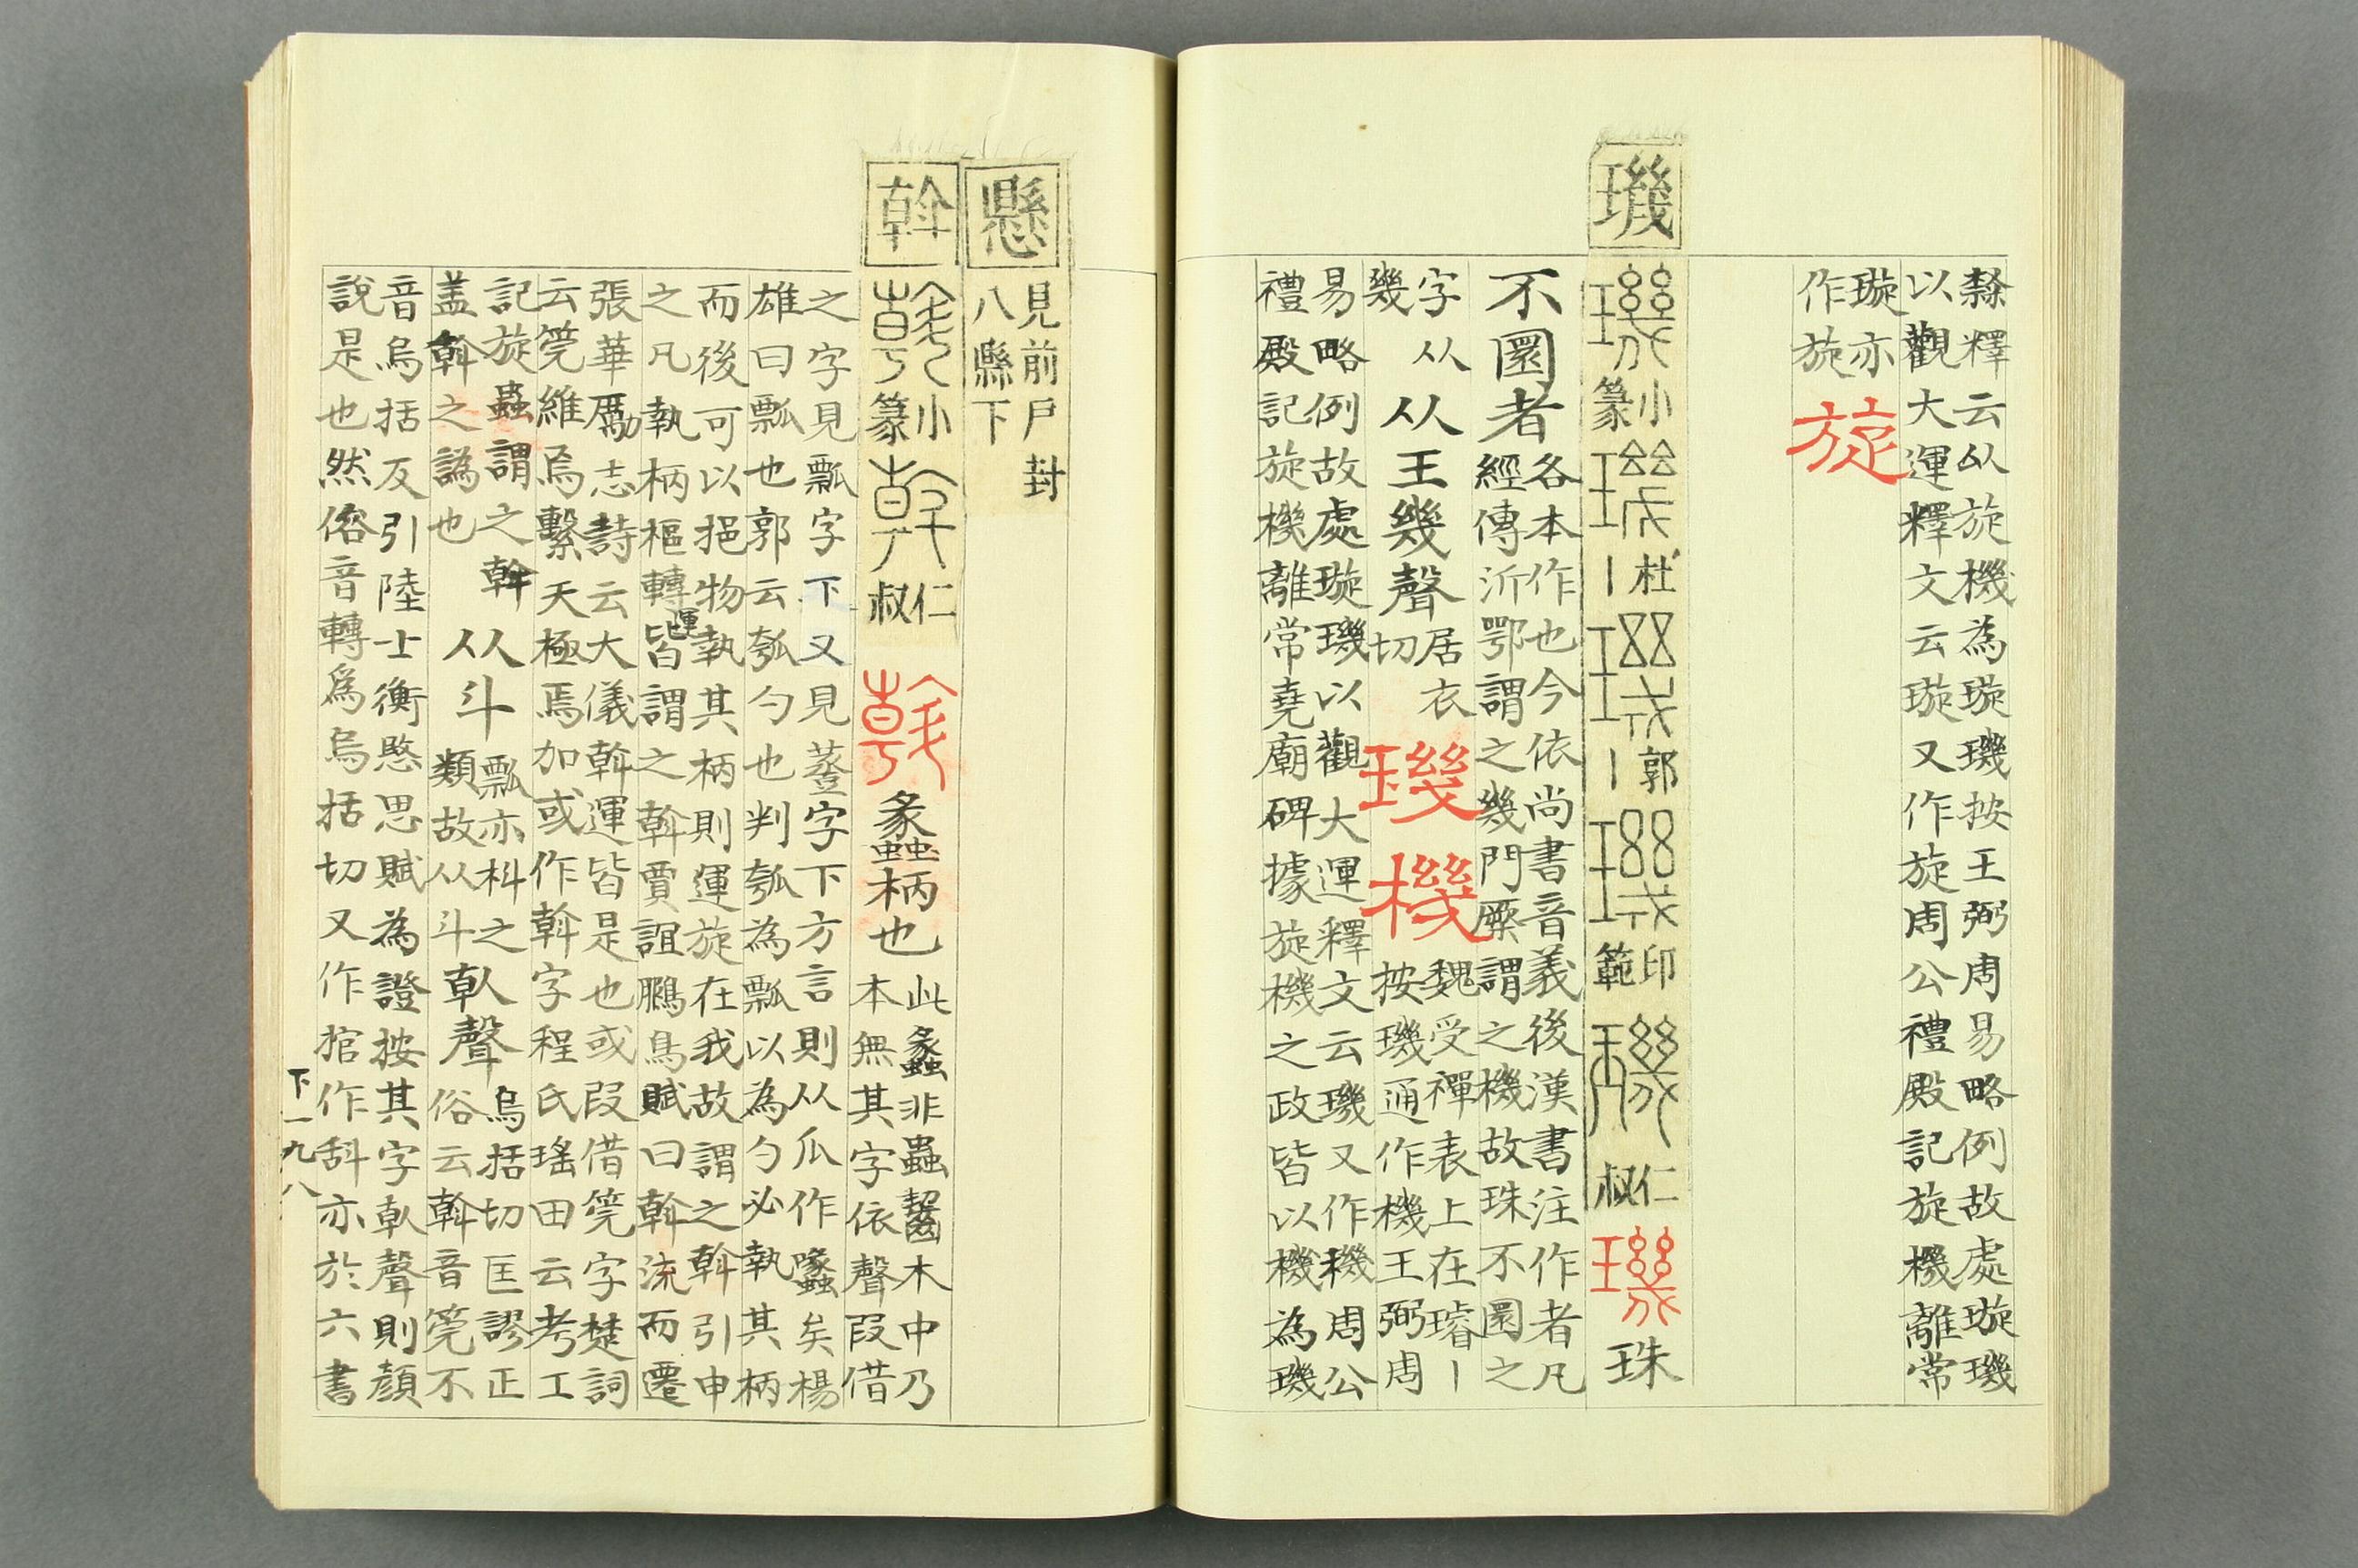 隸釋云以旋機為璇璣按王弼周易略例故處璇璣
以觀大運釋文云璇又作旋周公禮殿記旋機離常
璇亦
作旋
旋
璣
璣
小
篆
璣
杜
丨
璣
郭
丨
璣
印
範
璣
仁
叔
璣
珠
不圜者
各本作也今依尚書音義後漢書注作者凡
經傳沂鄂謂之幾門橜謂之機故珠不圜之
字从
幾
从王幾聲
居衣
切
璣
機
魏受禪表上在璿丨
按璣通作機王弼周
易略例故處璇璣以觀大運釋文云璣又作機周公
禮殿記旋機離常堯廟碑據旋機之政皆以機為璣
懸
見前尸封
八縣下
斡
斡
小
篆
斡
仁
叔
斡
蠡柄也
此蠡非蟲齧木中乃
本無其字依聲叚借
之字見瓢字下又見𧯷字下方言則从瓜作㼖矣楊
雄曰瓢也郭云瓠勺也判瓠為瓢以為勺必執其柄
而後可以挹物執其柄則運旋在我故謂之斡引申
之凡執柄樞轉運皆謂之斡賈誼鵩鳥賦曰斡流而遷
張華勵志詩云大儀斡運皆是也或叚借筦字楚詞
云筦維焉繫天極焉加或作斡字程氏瑤田云考工
記旋蟲謂之斡
盖斡之譌也
从斗
瓢亦枓之
類故从斗
倝聲
烏括切匡謬正
俗云斡音筦不
音烏括反引陸士衡愍思賦為證按其字倝聲則顏
說是也然俗音轉為烏括切又作捾作㪻亦於六書
下一九八